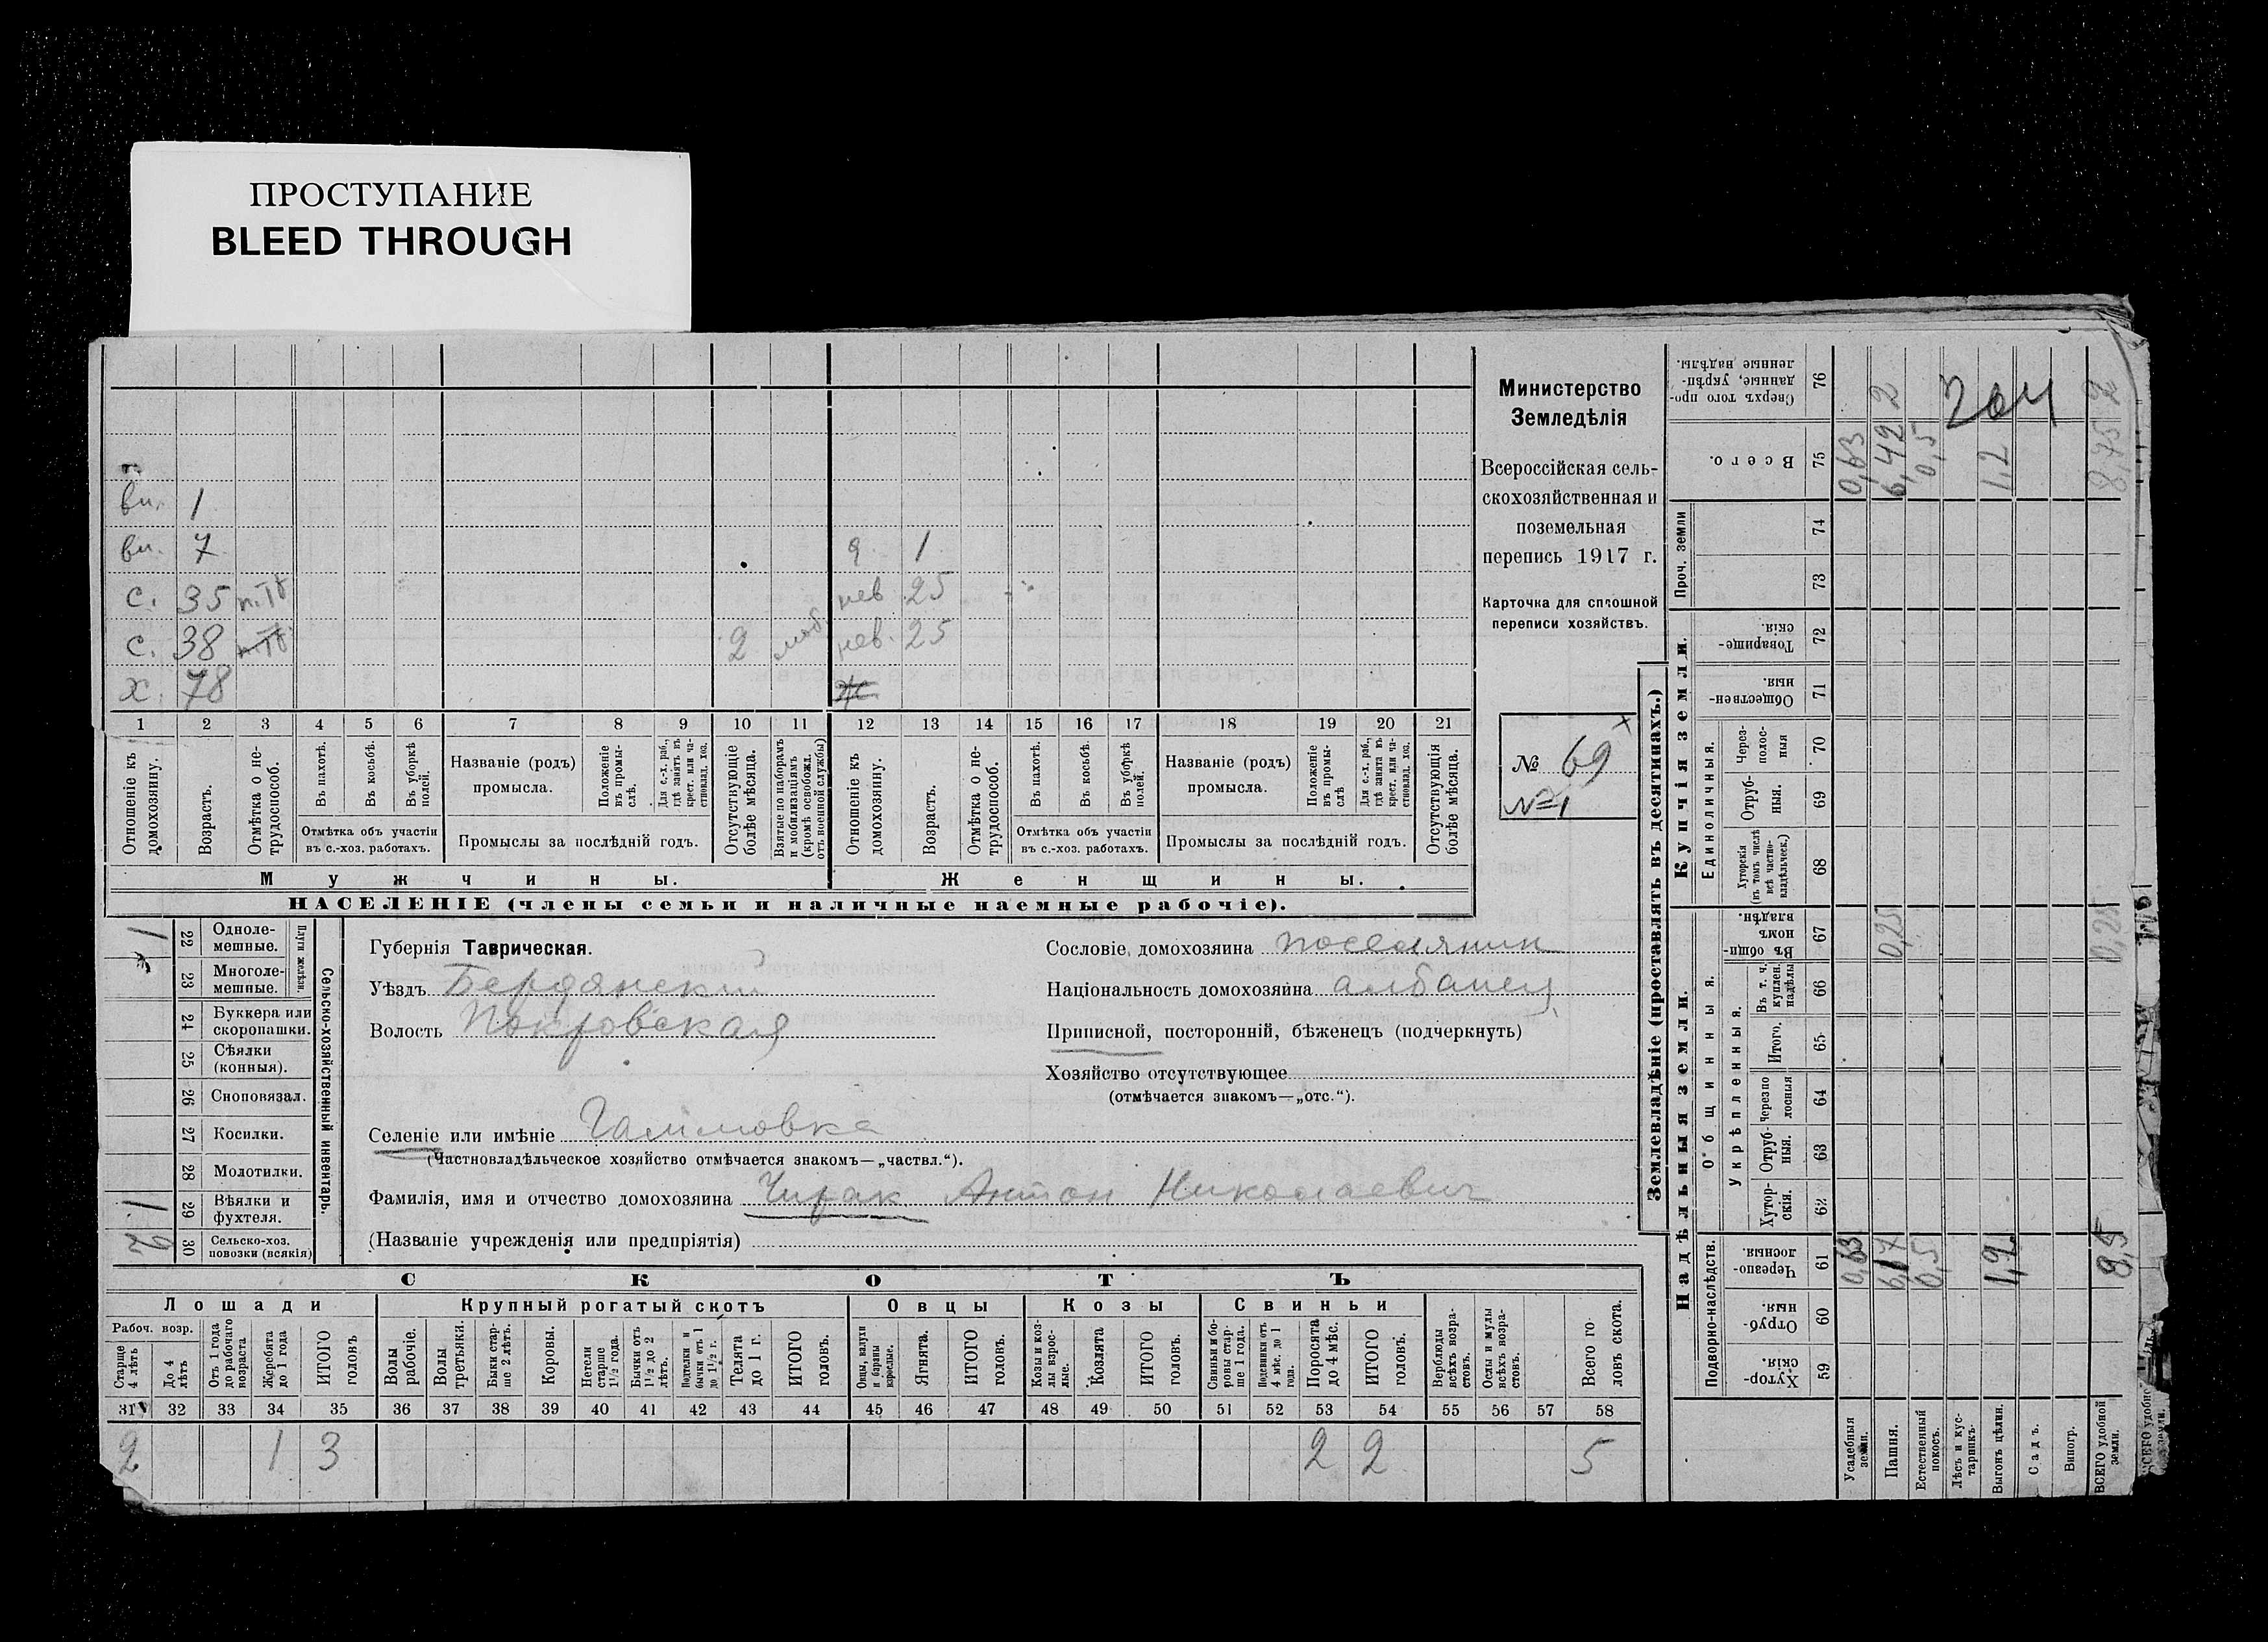 ПРОСТУПАНИЕ
BLEED THROUGH
Министерство
Земледѣлія
Всероссійская сель-
скохозяйственная и
поземельная
перепись 1917 г.
Карточка для сплошной
переписи хозяйствъ.
№ 69
№ 1
вн. 1
вн. 7
я. 1
с. 35
нев 25
с. 38
2 моб. нев. 25
х. 78
1 2 3 4 5 6 7 8 9 10 11 12 13 14 15 16 17 18 19 20 21
Отношеніе къ домохозяину.
Возрастъ.
Отмѣтка о не-трудоспособ.
Въ пахотѣ.
Въ косьбѣ.
Въ уборкѣ полей.
Отмѣтка объ участіи
въ с.-хоз. работахъ.
Названіе (родъ)
промысла.
Положеніе въ промы-слѣ.
Для с.-х. раб., гдѣ занятъ въ крест. или ча-стновлад. хоз.
Промыслы за послѣдній годъ.
Отсутствующіе болѣе мѣсяца.
Взятые по наборамъ и мобилизаціямъ (кромѣ освобожд. отъ военной службы)
Отношеніе къ домохозяину.
Возрастъ.
Отмѣтка о не-трудоспособ.
Въ пахотѣ.
Въ косьбѣ.
Въ уборкѣ полей.
Отмѣтка объ участіи
въ с.-хоз. работахъ.
Названіе (родъ)
промысла.
Положеніе въ промы-слѣ
Для с.-х. раб., гдѣ занята въ крест. или ча-стновлад. хоз.
Промыслы за послѣдній годъ.
Отсутствующія болѣе мѣсяца.
Мужчины.
Женщины.
НАСЕЛЕНІЕ (члены семьи и наличные наемные рабочіе).
Сельско-хозяйственный инвентарь.
Плуги желѣзн.
1 22 Одноле-мешные.
23 Многоле-мешные.
24 Буккера или скоропашки.
25 Сѣялки (конныя).
26 Сноповязал.
27 Косилки.
28 Молотилки.
1 29 Вѣялки и фухтеля.
2 30 Сельско-хоз. повозки (всякія)
Губернія Таврическая.
Уѣздъ Бердянский
Волость Покровская
Селеніе или имѣніе Гаммовка
(Частновладѣльческое хозяйство отмѣчается знакомъ—„частвл.“).
Фамилія, имя и отчество домохозяина Чирак Антон Николаевич
(Названіе учрежденія или предпріятія)
Сословіе домохозяина поселянин
Національность домохозяина албанец
Приписной, посторонній, бѣженецъ (подчеркнуть)
Хозяйство отсутствующее
(отмѣчается знакомъ—„отс.“).
СКОТЪ
Лошади Крупный рогатый скотъ Овцы Козы Свиньи
Рабоч. возр.
Старше 4 лѣтъ
До 4 лѣтъ
Отъ 1 года до рабочаго возраста
Жеребята до 1 года
ИТОГО головъ
Волы рабочіе.
Волы третьяки.
Быки стар-ше 2 лѣтъ.
Коровы.
Нетели старше 1½ года.
Бычки отъ 1½ до 2 лѣтъ.
Подтелки и бычки отъ 1 до 1½ г.
Телята до 1 г.
ИТОГО головъ.
Овцы, валухи и бараны взрослые.
Ягнята.
ИТОГО головъ.
Козы и коз-лы взрос-лые.
Козлята
ИТОГО головъ.
Свиньи и бо-ровы стар-ше 1 года.
Подсвинки отъ 4 мѣс. до 1 года.
Поросята до 4 мѣс.
ИТОГО головъ.
Верблюды всѣхъ возра-стовъ.
Ослы и мулы всѣхъ возра-стовъ.
Всего го-ловъ скота.
31 32 33 34 35 36 37 38 39 40 41 42 43 44 45 46 47 48 49 50 51 52 53 54 55 56 57 58
2 1 3 2 2 5
Землевладѣніе (проставлять въ десятинахъ.)
Надѣльныя земли.
Купчія земли.
Подворно-наслѣдств.
Общинныя.
Укрѣпленныя.
Единоличныя.
Проч. земли
Хутор-скія. 59
Отруб-ныя. 60
Черезпо-лосныя. 61
Хутор-скія. 62
Отруб-ныя. 63
Черезпо-лосныя 64
Итого. 65
Въ т. ч. куплен. надѣлы 66
Въ общин-номъ владѣн. 67
Хуторскія (въ томъ числѣ всѣ частно-владѣльческ.) 68
Отруб-ныя. 69
Через-полос-ныя 70
Обществен-ныя. 71
Товарище-скія. 72
73
74
Всего. 75
Сверхъ того про-данные, укрѣп-ленные надѣлы. 76
Усадебныя земли. 0,63 0,63
Пашня. 6,17 0,25 6,42 2
Естественный покосъ. 0,5 0,5
Лѣсъ и кус-тарникъ.
Выгонъ цѣлин. 1,2 1,2
Садъ.
Виногр.
ВСЕГО удобной земли. 8,5 0,25 8,75 2
204